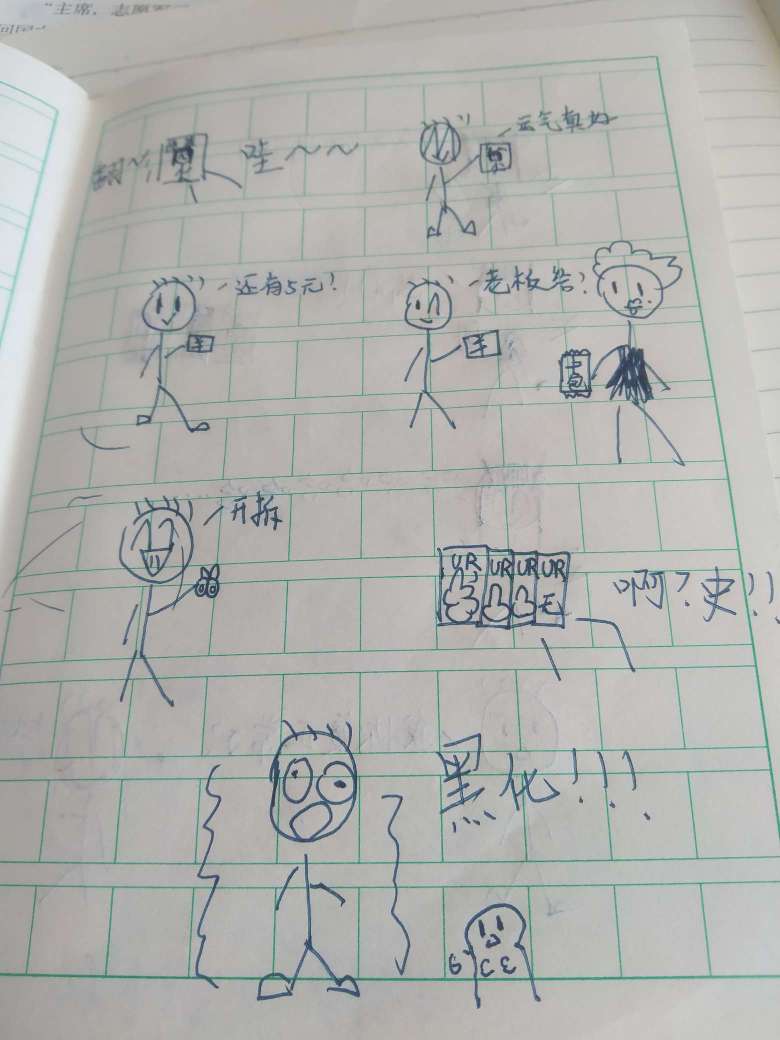 "主席，志愿军
哇～～
运气真好
还有5元！
老板给！
卡包
开拆
UR UR UR UR
无
啊？史！！
黑化！！！